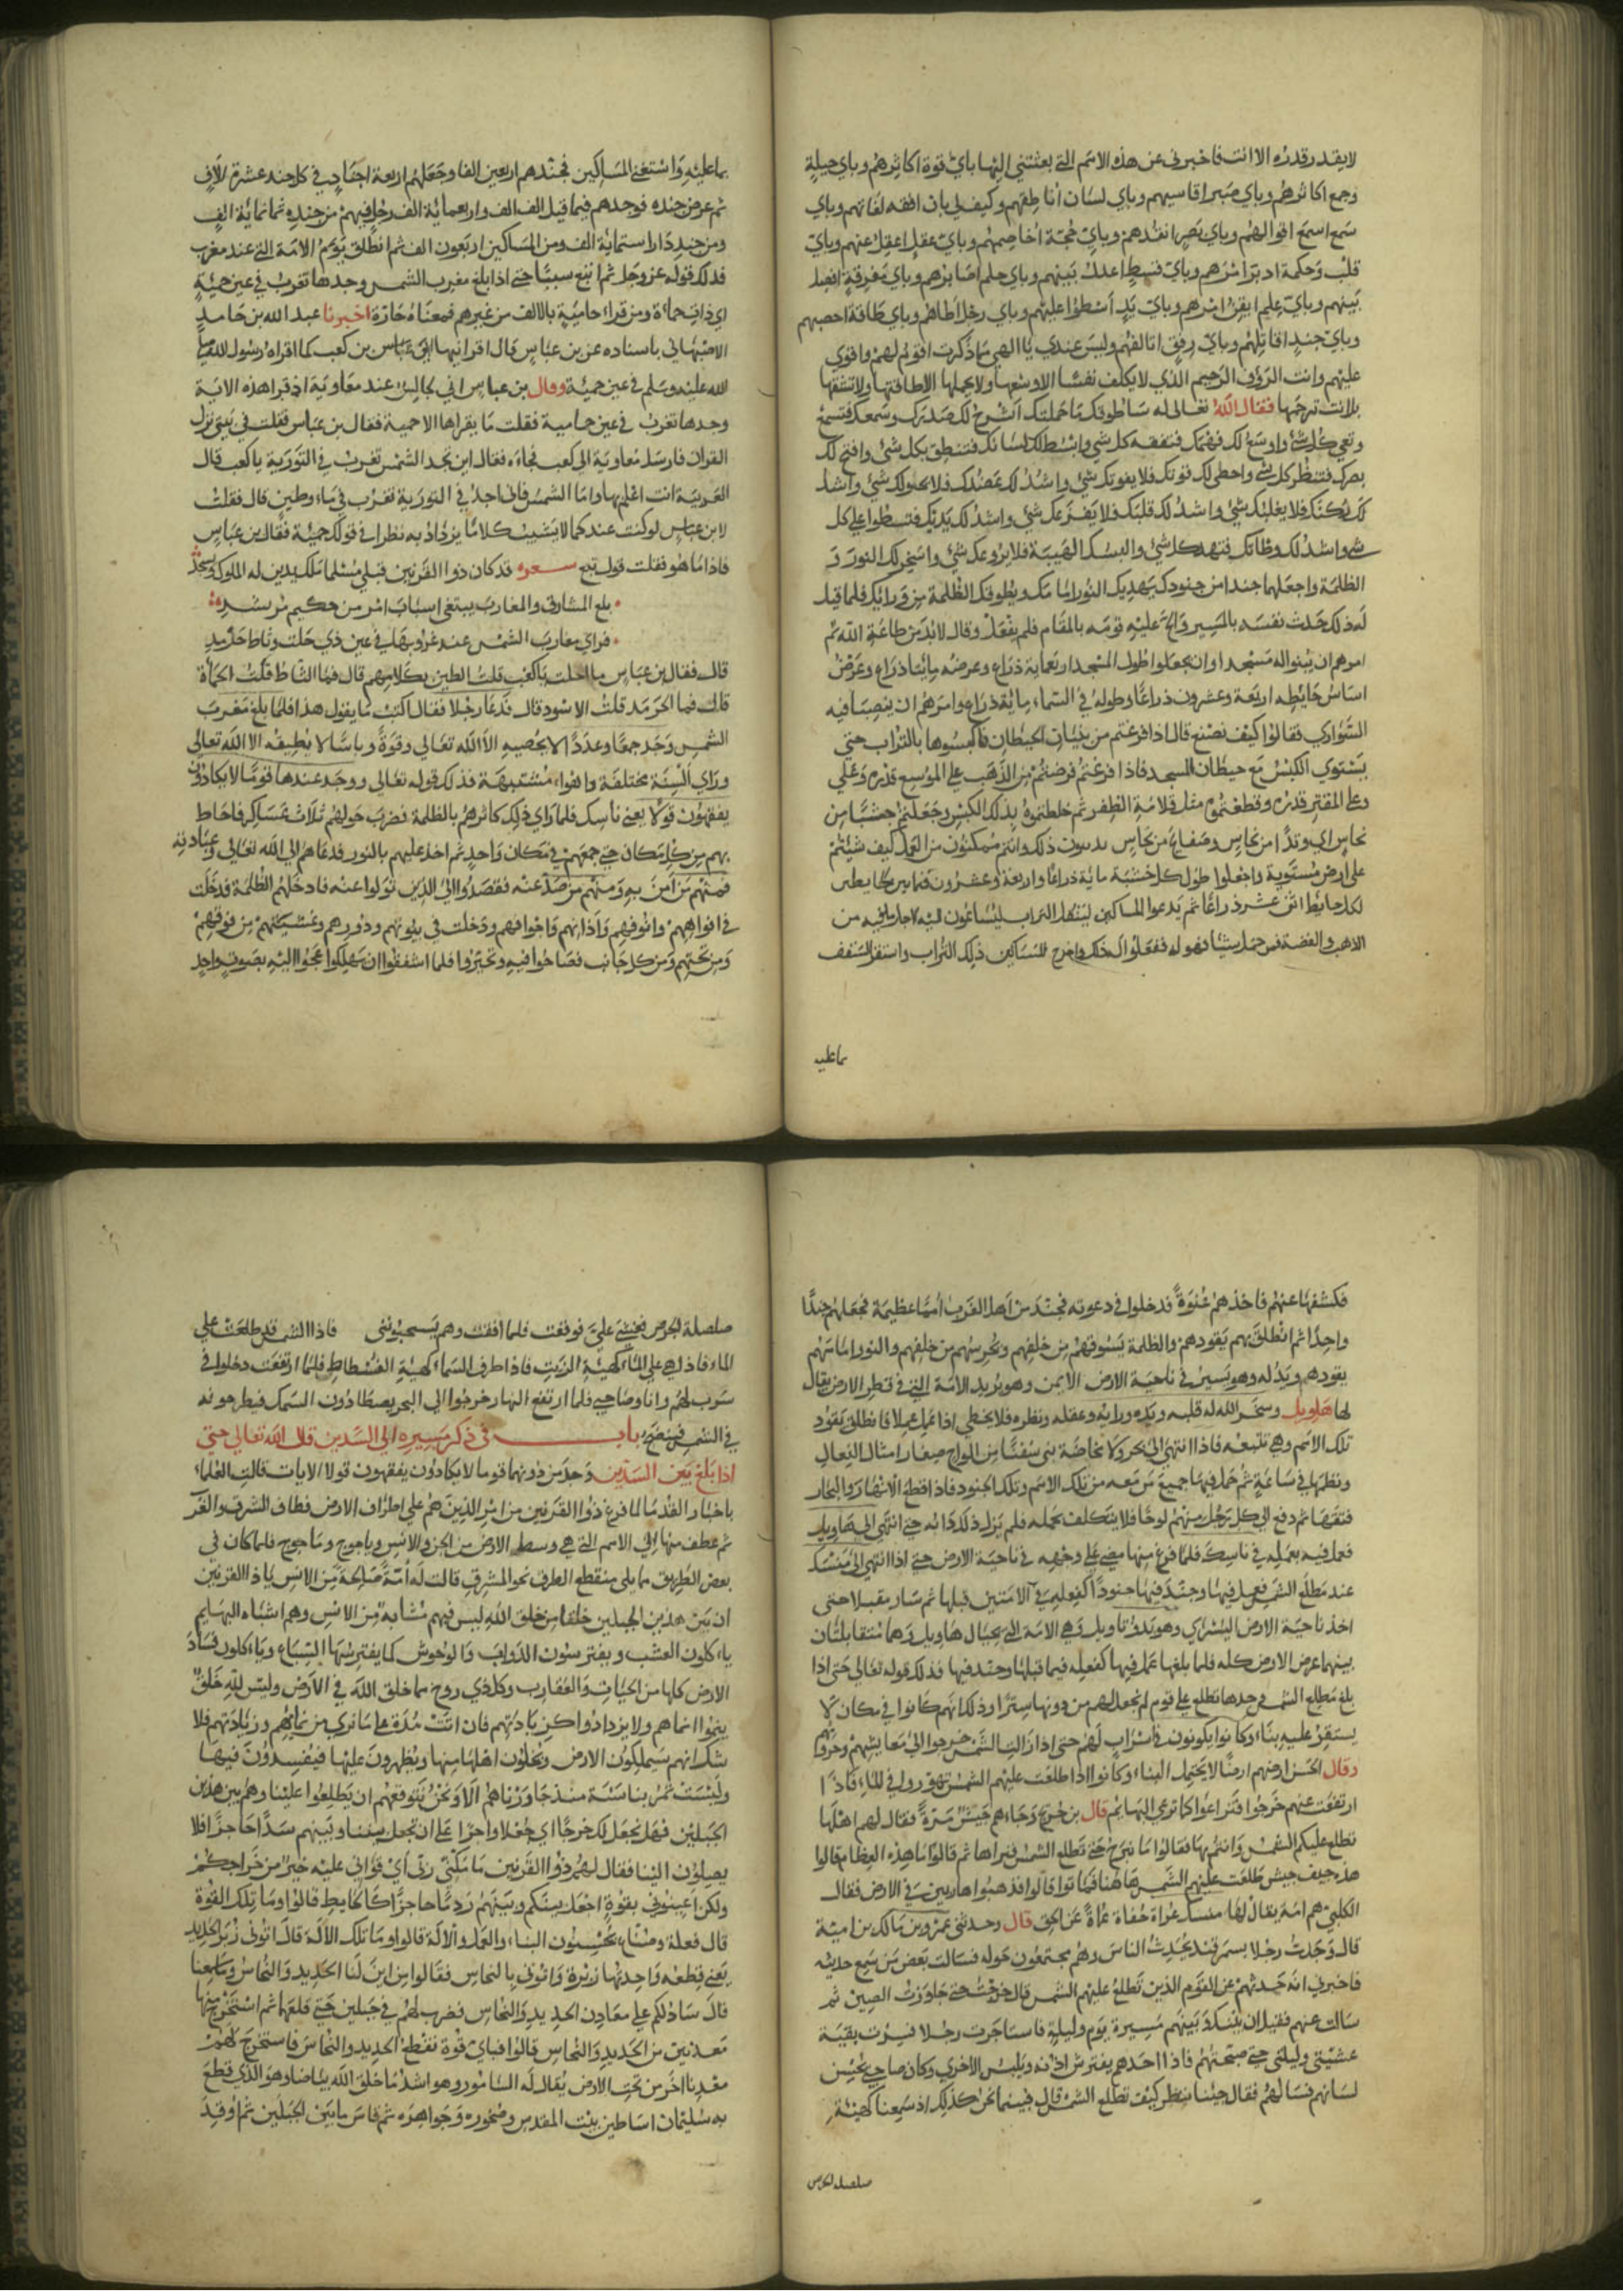 لا يقدر قدره الا انت فاخبرني عن هذه الامم التي بعثتني اليها باي قوة اكاثرهم وباي حيلة
وجمع اكاثرهم وباي صبر اقاسيهم وباي لسان اناطقهم وكيف لي بان افقه لغاتهم وباي
سمع اسمع اقوالهم وباي بصر انقدهم وباي حجة اخاصمهم وباي عقل اعقل عنهم وباي
قلب وحكمة ادبر امرهم وباي قسط اعدل بينهم وباي حلم اصابرهم وباي معرفة افصل
بينهم وباي علم ايقن امرهم وباي يد اسطوا عليهم وباي رجل اطاهم وباي طاقة احصيهم
وباي جند اقاتلهم وباي رفق اتالفهم وليس عندي يا الهي مما ذكرت اقوم لهم واقوي
عليهم وانت الروف الرحيم الذي لا يكلف نفسا الا وسعها ولا يحملها الا طاقتها ولا تشقها
بل انت ترحمها فقال الله تعالي له ساطوقك ما حملتك اشرح لك صدرك وسمعك فتسمع
وتعي كل شي واوسع لك فهمك فتفقه كل شي وابسط لك لسانك فتنطق بكل شي وافتح لك
بصرك فتنظر كل شي واحصي لك قوتك فلا يفوتك شي واشد لك عضدك فلا يحلولك شي واشد
لك ركنك فلا يغلبك شي واشد لك قلبك فلا يفزعك شي واشد لك يديك فتسطوا علي كل
شي واشد لك وطاتك فتهد كل شي والبسك الهيبة فلا يروعك شي واسخر لك النور و
الظلمة واجعلهما جندا من جنودك يهديك النور امامك ويطوقك الظلمة من ورايك فلما قيل
له ذلك حدث نفسه بالمسير والح عليه قومه بالمقام فلم يفعل وقال لابد من طاعة الله ثم
امرهم ان يبنوا له مسجدا وان يجعلوا طول المسجد اربعماية ذراع وعرضه مايتا ذراع وعرض
اساس حايطه اربعة وعشرون ذراعا وطوله في السماء ماية ذراع وامرهم ان ينصبوا فيه
السواري فقالوا كيف نصنع قال اذا فرغتم من بنيان الحيطان فاكبسوها بالتراب حتي
يستوي الكبس مع حيطان المسجد فاذا فرغتم فرضتم من الذهب علي الموسع قدره وعلي
وعلي المقتر قدره وقطعتموه مثل قلامة الظفر ثم خلطتموه بذلك الكبس وجعلتم خشبا من
نحاس اي وتدا من نحاس وصفايح من نحاس ذلك وانتم متمكنون من العمل كيف شيتم
علي ارض مستوية واجعلوا طول كل خشبة ماية ذراعا واربعة وعشرون
لكل حايط اثني عشر ذراعا ثم يدعوا المساكين لينقل التراب ليسارعون اليه لاجل ما فيه من
الذهب والفضة فمن حمل شيئا فهو له ففعلوا ذلك واخرج المساكين ذلك التراب واستقر السقف
ما عليه
بما عليه واستغني المساكين فجندهم اربعين الفا وجعلهم اربعة اجناد في كل جند عشرة الاف
ثم عرض جنده فوجدهم فيما قيل الف الف واربعماية الف رجل فيهم من جنده ثمانماية الف
ومن جند دارا ستماية الف ومن المساكين اربعون الف ثم انطلق يؤم الامة التي عند مغرب
فذلك قوله عز وجل ثم اتبع سببا حتي اذا بلغ مغرب الشمس وجدها تغرب في عين حمئة
اي ذات حماة ومن قراء حامية بالالف من غير همز فمعناه حارة اخبرنا عبد الله بن حامد
الاصبهاني باسناده عن بن عباس قال اقرانيها ابي بن كعب كما اقراه رسول الله صلي
الله عليه وسلم في عين حمئة وقال بن عباس اني لجالس عند معاوية اذ قرا هذه الاية
وجدها تغرب في عين حامية فقلت ما يقراها الا حمية فقال بن عباس فقلت في بيتي نزل
القران فارسل معاوية الي كعب فجاءه فقال اين نجد الشمس تغرب في التورية يا كعب قال
العربية انت اعلم بها واما الشمس فاني اجد في التورية تغرب في ماء وطين قال فقلت
لابن عباس لو كنت عندكما لانشيت كلاما يزداد به نظرا في قولك حمئة فقال بن عباس
فاذا ما هو فقلت قول تبع شعره قد كان ذوا القرنين قبلي مسلما ملك يدين له الملوك ويسجد
بلغ المشارق والمغارب يبتغي اسباب امر من حكيم مرشد
فراي مغارب الشمس عند غروبها في عين ذي خلب وثاط حرمد
قال فقال بن عباس ما الخلب يا كعب قلت الطين بكلامهم قال فما الثاط قلت الحماة
قال فما الحرمد قلت الاسود قال فدعا رجلا فقال اكتب ما يقول هذا فلما بلغ مغرب
الشمس وجد جمعا وعددا لا يحصيه الا الله تعالي وقوة وباسا لا يطيقه الا الله تعالي
وراي السنة مختلفة واهواء متشبهة فذلك قوله تعالي ووجد عندها قوما لا يكادون
يفقهون قولا يعني ناسك فلما راي ذلك كاثرهم بالظلمة فضرب حولهم ثلاث عساكر فاحاط
بهم من كل مكان حتي جمعهم في مكان واحد ثم اخذ عليهم بالنور فدعاهم الي الله تعالي وعبادته
فمنهم من امن به ومنهم من صد عنه فقصدوا الي الذين تولوا عنه فادخلهم الظلمة فدخلت
في افواههم وانوفهم واذانهم واجوافهم ودخلت في بيوتهم ودورهم وغشيتهم من فوقهم
ومن تحتهم ومن كل جانب فصاحوا فيه وتحيروا فلما اشفقوا ان يهلكوا عجوا اليه بصوت واحد
فكشفها عنهم فاخذهم عنوة فدخلوا في دعوته فجند من اهل الغرب امما عظيمة فجعلهم جندا
واحدا ثم انطلق بهم يقودهم والظلمة يسوقهم من خلفهم وتحرسهم من خلفهم والنور امامهم
يقودهم ويدله وهو يسير في ناحية الارض الايمن وهو يريد الامة التي في قطر الارض يقال
لها هاويل وسخر الله له قلبه ويده ورايه وعقله ونظره فلا يخطي اذا عمل عملا فانطلق يقود
تلك الامم وهي تتبعه فاذا انتهي الي بحر او مخاضة بني سفنا من الواح صغار امثال النعال
ونظمها في ساعة ثم حمل فيها جميع من معه من تلك الامم وتلك الجنود فاذا قطع الانهار والبحار
فتقها ثم دفع الي كل رجل منهم لوحا فلا يتكلف بحمله فلم يزل ذلك دابه حتي انتهي الي هاويل
فعمل فيه بعمله في ناسك فلما فرغ منها مضي علي وجهه في ناحية الارض حتي اذا انتهي الي منسك
عند مطلع الشمس فعمل فيها وجند فيها جنودا كفعله في الامتين قبلها ثم سار مقبلا حتي
اخذ ناحية الارض اليسري وهو يريد تاويل وهي الامة التي بحيال هاويل وهما متقابلتان
بينهما عرض الارض كله فلما بلغها عمل فيها كفعله فيما قبلها وجند فيها فذلك قوله تعالي حتي اذا
بلغ مطلع الشمس وجدها تطلع علي قوم لم نجعل لهم من دونها سترا وذلك انهم كانوا في مكان لا
يستقر عليه بناء وكانوا يكونون في اسراب لهم حتي اذا زالت الشمس خرجوا الي معايشهم وحروثهم
وقال الحسن ارضهم ارضا لا يحتمل البناء وكانوا اذا طلعت عليهم الشمس تهوروا في الماء فاذا
ارتفعت عنهم خرجوا فتراعوا كما ترعي البهايم قال بن جريج وجاءهم جيش مرة فقال لهم اهلها
لا تطلع عليكم الشمس وانتم بها فقالوا ما نبرح حتي تطلع الشمس فنراها ثم قالوا ما هذه العظام قالوا
هذه جيف جيش طلعت عليهم الشمس هاهنا فماتوا قالوا فذهبوا هاربين في الارض فقال
الكلبي هم امة يقال لها منسك عراة حفاة عماة عن الحق قال وحدثني عمرو بن مالك بن امية
قال وجدت رجلا بسمرقند يحدث الناس وهم يجتمعون حوله فسالت بعض من سمع حديثه
فاخبرني انه حدثهم عن القوم الذين تطلع عليهم الشمس قال خرجت حتي جاوزت الصين ثم
سالت عنهم فقيل ان بينك وبينهم مسيرة يوم وليلة فاستاجرت رجلا فسرت بقية
عشيتي وليلتي حتي صبحتهم فاذا احدهم يفترش اذنه ويلبس الاخري وكان صاحبي يحسن
لسانهم فسالهم فقال جئنا ننظر كيف تطلع الشمس قال فبينما نحن كذلك اذ سمعنا كهيئة
صلصلة الجرس
صلصلة الجرس فغشي علي فوقعت فلما افقت وهم يسحبونني فاذا الشمس قد طلعت علي
الماء فاذا هي علي الماء كهيئة الزيت فاذا طرف السماء كهيئة الفسطاط فلما ارتفعت دخلوا في
سرب لهم وانا وصاحبي فلما ارتفع النهار خرجوا الي البحر يصطادون السمك فيطرحونه
في الشمس فينضج باب في ذكر مسيره الي السدين قال الله تعالي حتي
اذا بلغ بين السدين وجد من دونهما قوما لا يكادون يفقهون قولا الايات قالت العلماء
باخبار القدما لما فرغ ذوا القرنين من امر الذين هم علي اطراف الارض فطاف الشرق والغرب
ثم عطف منها الي الامم التي هي وسط الارض من الجن والانس وياجوج وماجوج فلما كان في
بعض الطريق مما يلي منقطع الطرف نحو المشرق قالت له امة صالحة من الانس يا ذا القرنين
ان بين هذين الجبلين خلقا من خلق الله ليس فيهم مشابه من الانس وهم اشباه البهايم
ياءكلون العشب ويفترسون الدواب والوحوش كما يفترسها السباع وياءكلون فساد
الارض كلها من الحيات والعقارب وكل ذي روح مما خلق الله في الارض وليس لله خلق
ينموا انماهم ولا يزدادوا كزيادتهم فان اتت مدة علي ما نري من نمايهم وزيادتهم فلا
شك انهم سيملكون الارض ويجلون اهلها منها ويظهرون عليها فيفسدون فيها
وليست تمر بنا سنة منذ جاورناهم الا ونحن نتوقعهم ان يطلعوا علينا وهم بين هذين
الجبلين فهل نجعل لك خرجا اي جعلا واجرا علي ان تجعل بيننا وبينهم سدا حاجزا فلا
يصلون الينا فقال لهم ذوا القرنين ما مكني ربي اي قواني عليه خير من خراجكم
ولكن اعينوني بقوة اجعل بينكم وبينهم ردما حاجزا كالحايط قالوا وما تلك القوة
قال فعلة وصناع يحسنون البناء والعمل والالة قالوا وما تلك الالة قال اتوني زبر الحديد
يعني قطعه واحدتها زبرة واتوني بالنحاس فقالوا من اين لنا الحديد والنحاس وما يسعنا
قال سادلكم علي معادن الحديد والنحاس فضرب لهم في جبلين حتي فلقهما ثم استخرج منها
معدنين من الحديد والنحاس قالوا فباي قوة نقطع الحديد والنحاس فاستخرج لهم
معدنا اخر من تحت الارض يقال له السامور وهو اشد ما خلق الله بياضا وهو الذي قطع
به سليمان اساطين بيت المقدس وصخوره وجواهره ثم قاس ما بين الجبلين ثم اوقد